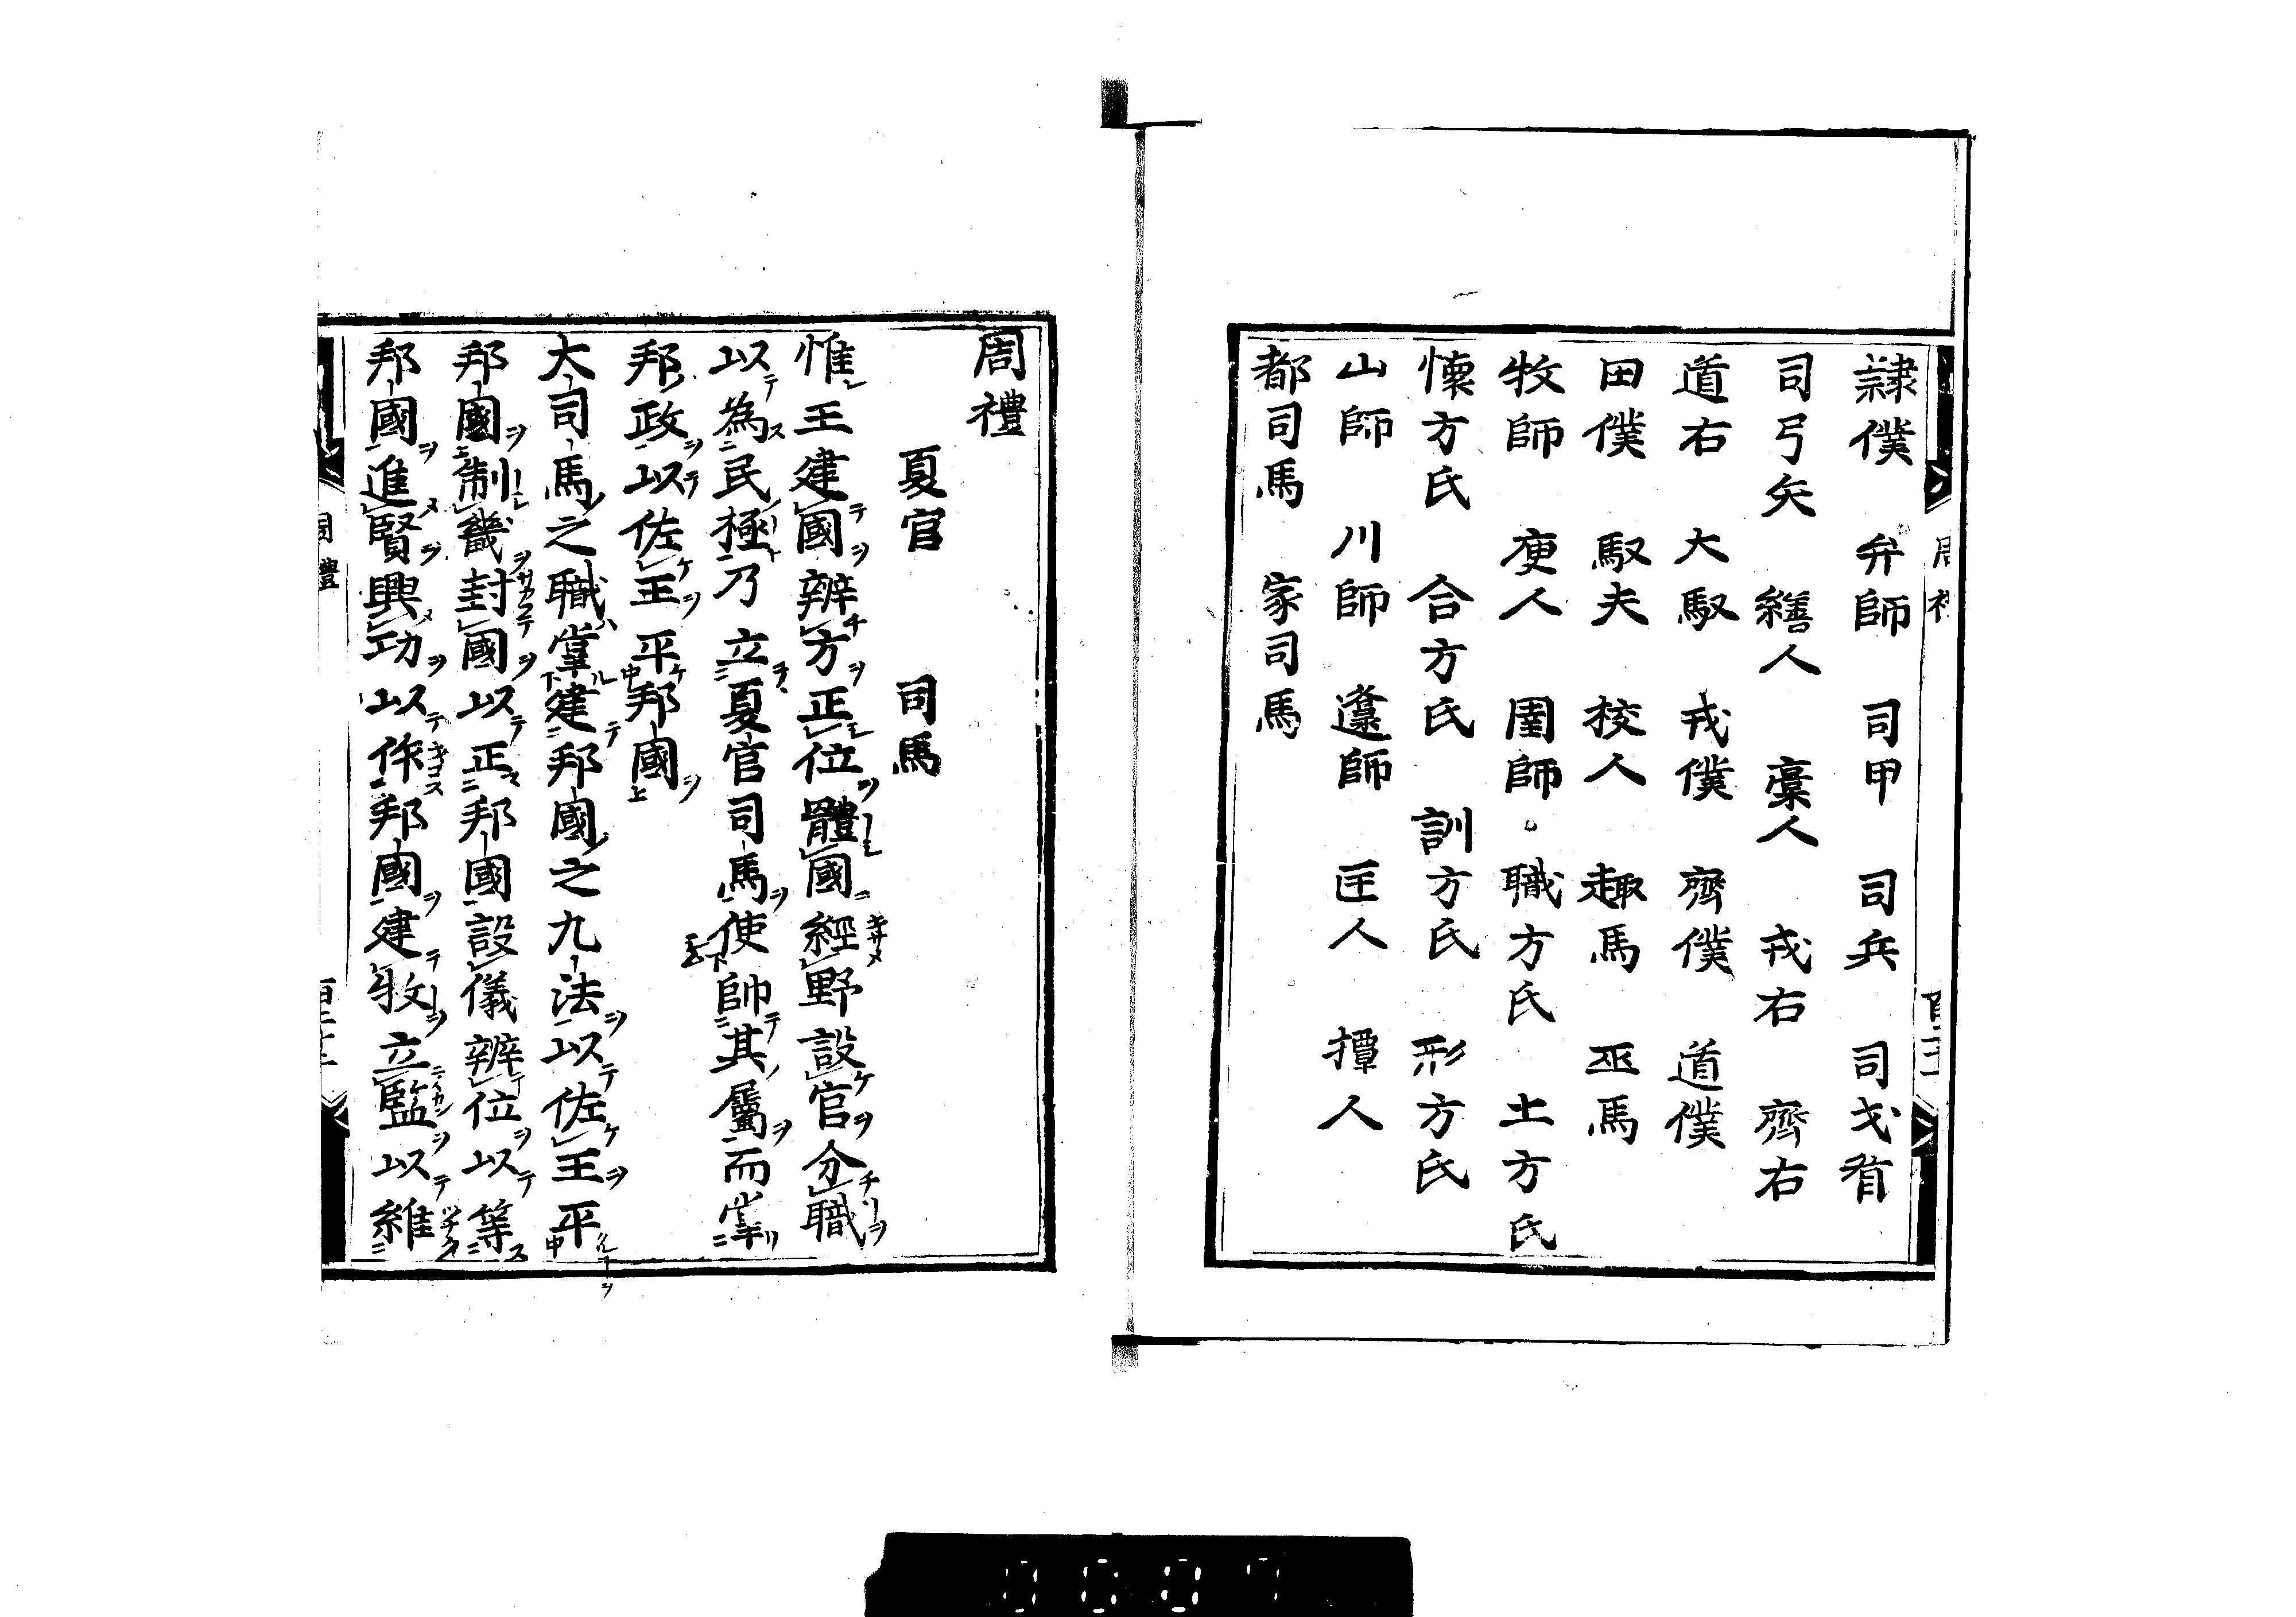 隷僕　弁師　司甲　司兵　司戈盾
司弓矢　繕人　稾人　戎右　齊右
道右　大馭　戎僕　齊僕　道僕
田僕　馭夫　校人　趣馬　巫馬
牧師　庾人　圉師　職方氏　土方氏
懷方氏　合方氏　訓方氏　形方氏
山師　川師　邍師　匡人　撢人
都司馬　家司馬
周禮
夏官　司馬
惟王建國辨方正位體國經野設官分職
以為民極乃立夏官司馬使帥其屬而掌
邦政以佐王平邦國
大司馬之職掌建邦國之九法以佐王平
邦國制畿封國以正邦國設儀辨位以等
邦國進賢興功以作邦國建牧立監以維
周禮